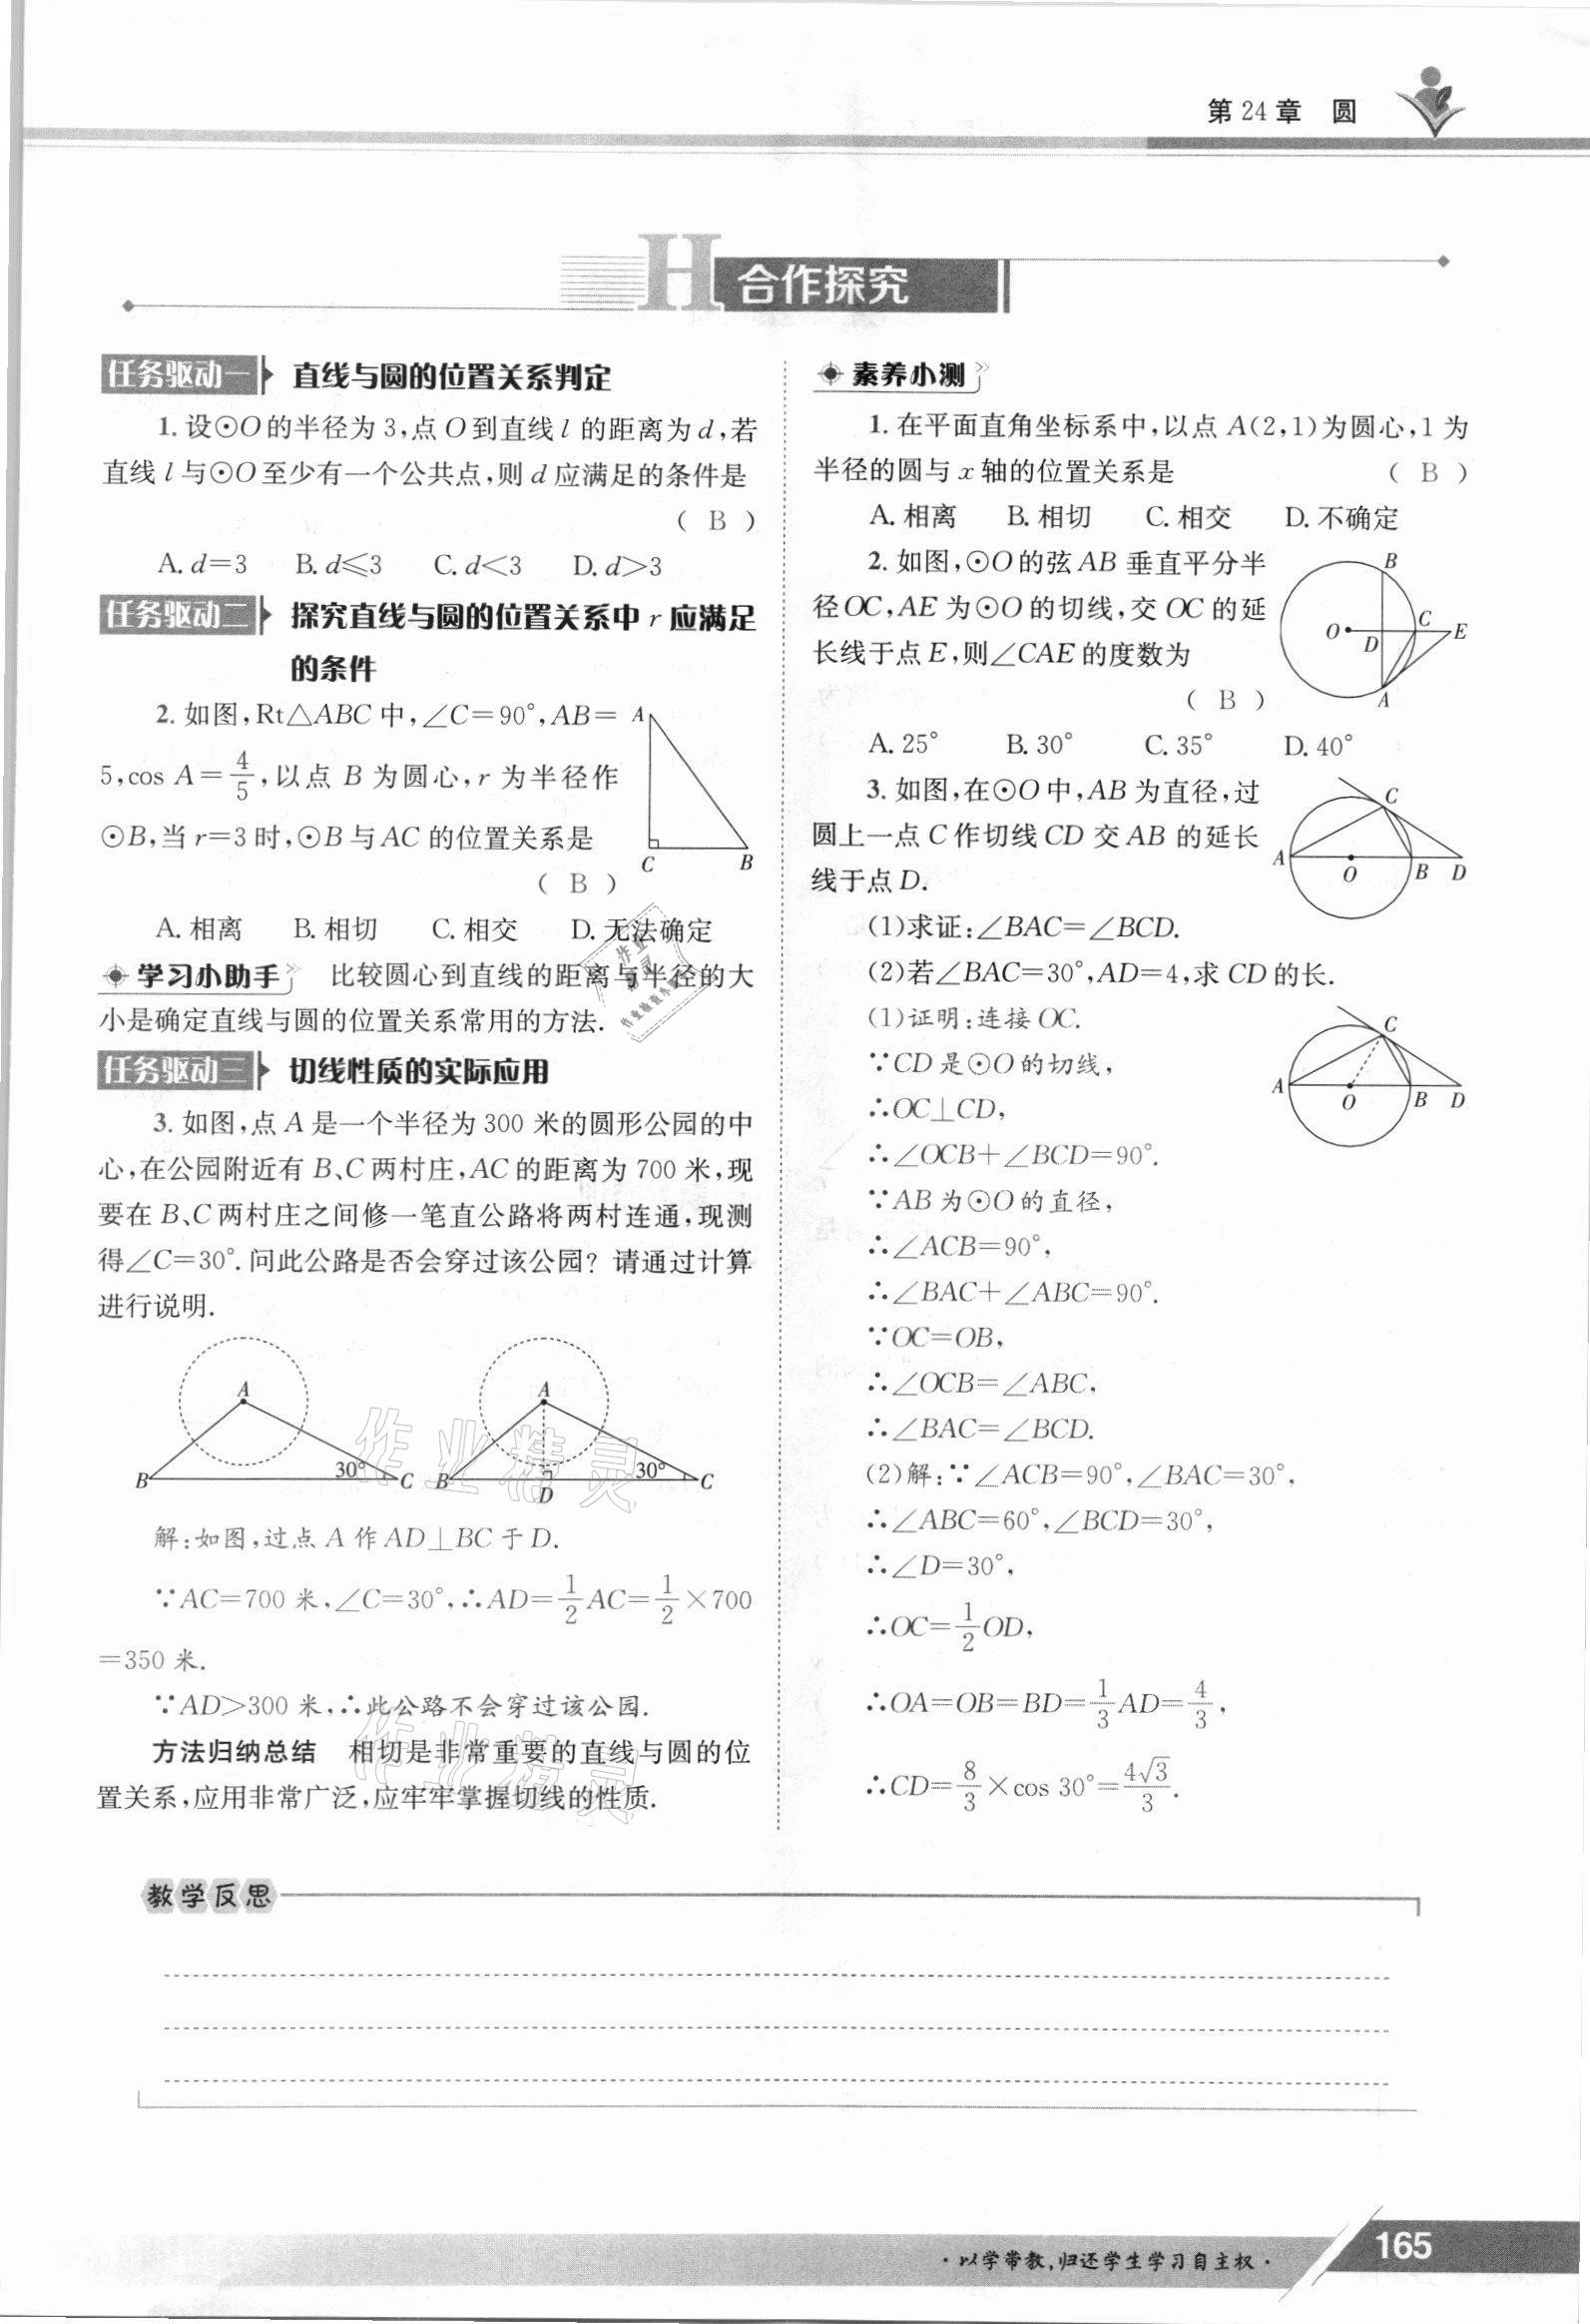 第 24 章 圆
H 合作探究
任务驱动一 直线与圆的位置关系判定
1. 设⊙O的半径为 3,点 O 到直线 l 的距离为 d,若
直线 l 与⊙O至少有一个公共点,则 d 应满足的条件是
( B )
A. d=3 B. d≤3 C. d<3 D. d>3
任务驱动二 探究直线与圆的位置关系中 r 应满足
的条件
2. 如图,Rt△ABC 中,∠C=90°,AB=
5,cos A=4/5,以点 B 为圆心,r 为半径作
⊙B,当 r=3 时,⊙B 与 AC 的位置关系是
( B )
A
C
B
A. 相离 B. 相切 C. 相交 D. 无法确定
学习小助手 比较圆心到直线的距离与半径的大
小是确定直线与圆的位置关系常用的方法.
任务驱动三 切线性质的实际应用
3. 如图,点 A 是一个半径为 300 米的圆形公园的中
心,在公园附近有 B、C 两村庄,AC 的距离为 700 米,现
要在 B、C 两村庄之间修一笔直公路将两村连通,现测
得∠C=30°. 问此公路是否会穿过该公园? 请通过计算
进行说明.
A
B
30°
C
A
B
D
30°
C
解:如图,过点 A 作 AD⊥BC 于 D.
∵AC=700 米,∠C=30°,∴AD=1/2 AC=1/2×700
=350 米.
∵AD>300 米,∴此公路不会穿过该公园.
方法归纳总结 相切是非常重要的直线与圆的位
置关系,应用非常广泛,应牢牢掌握切线的性质.
素养小测
1. 在平面直角坐标系中,以点 A(2,1)为圆心,1 为
半径的圆与 x 轴的位置关系是 ( B )
A. 相离 B. 相切 C. 相交 D. 不确定
2. 如图,⊙O 的弦 AB 垂直平分半
径OC,AE 为⊙O 的切线,交 OC 的延
长线于点 E,则∠CAE 的度数为
( B )
B
O
D
C
E
A
A. 25° B. 30° C. 35° D. 40°
3. 如图,在⊙O 中,AB 为直径,过
圆上一点 C 作切线 CD 交 AB 的延长
线于点 D.
C
A
O
B
D
(1)求证:∠BAC=∠BCD.
(2)若∠BAC=30°,AD=4,求 CD 的长.
(1)证明:连接 OC.
∵CD 是⊙O 的切线,
∴OC⊥CD,
∴∠OCB+∠BCD=90°.
∵AB 为⊙O 的直径,
∴∠ACB=90°,
∴∠BAC+∠ABC=90°.
∵OC=OB,
∴∠OCB=∠ABC,
∴∠BAC=∠BCD.
C
A
O
B
D
(2)解:∵∠ACB=90°,∠BAC=30°,
∴∠ABC=60°,∠BCD=30°,
∴∠D=30°,
∴OC=1/2 OD,
∴OA=OB=BD=1/3 AD=4/3,
∴CD=8/3×cos 30°=4√3/3.
作业精灵
作业精灵
教学反思
·以学带教,归还学生学习自主权·
165